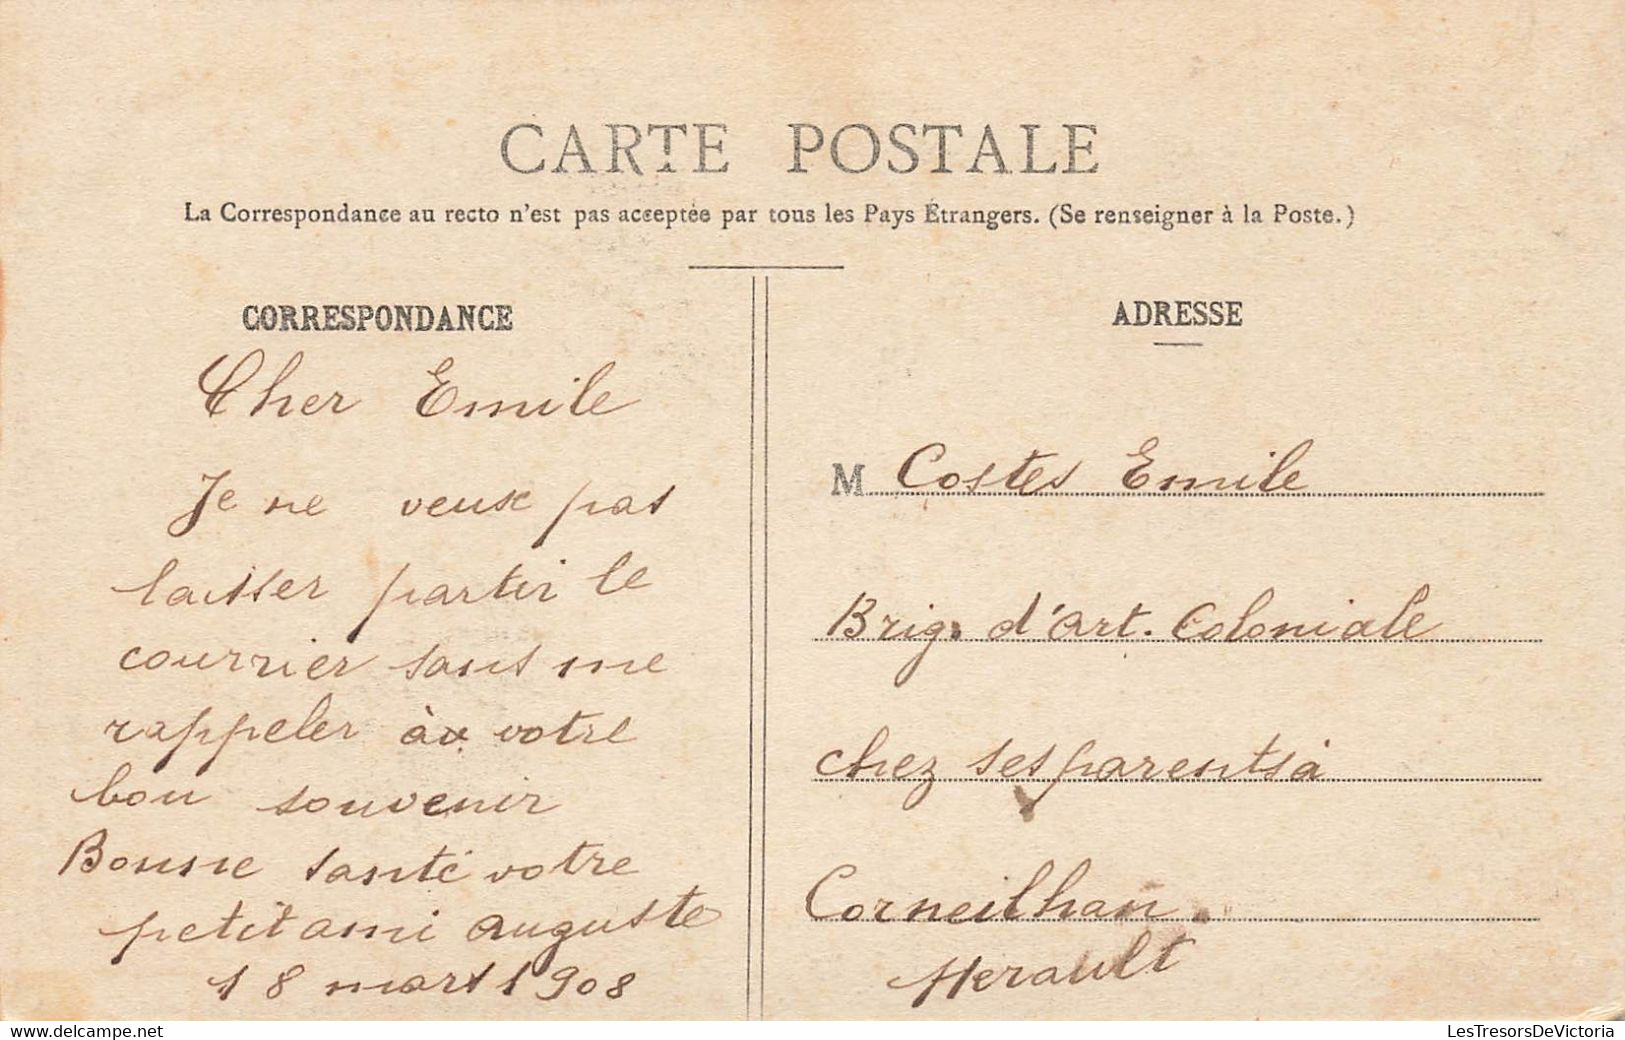 CARTE POSTALE
La Correspondance au recto n'est pas acceptée par tous les Pays Étrangers. (Se renseigner à la Poste.)
CORRESPONDANCE
Cher Emile
Je ne veux pas
laisser partir le
courrier sans me
rappeler à votre
bon souvenir
Bonne santé votre
petit ami Auguste
18 mars 1908
ADRESSE
M Costes Emile
Brig. d'Art. Coloniale
chez ses parents à
Corneilhan.
Herault
www.delcampe.net
LesTresorsDeVictoria